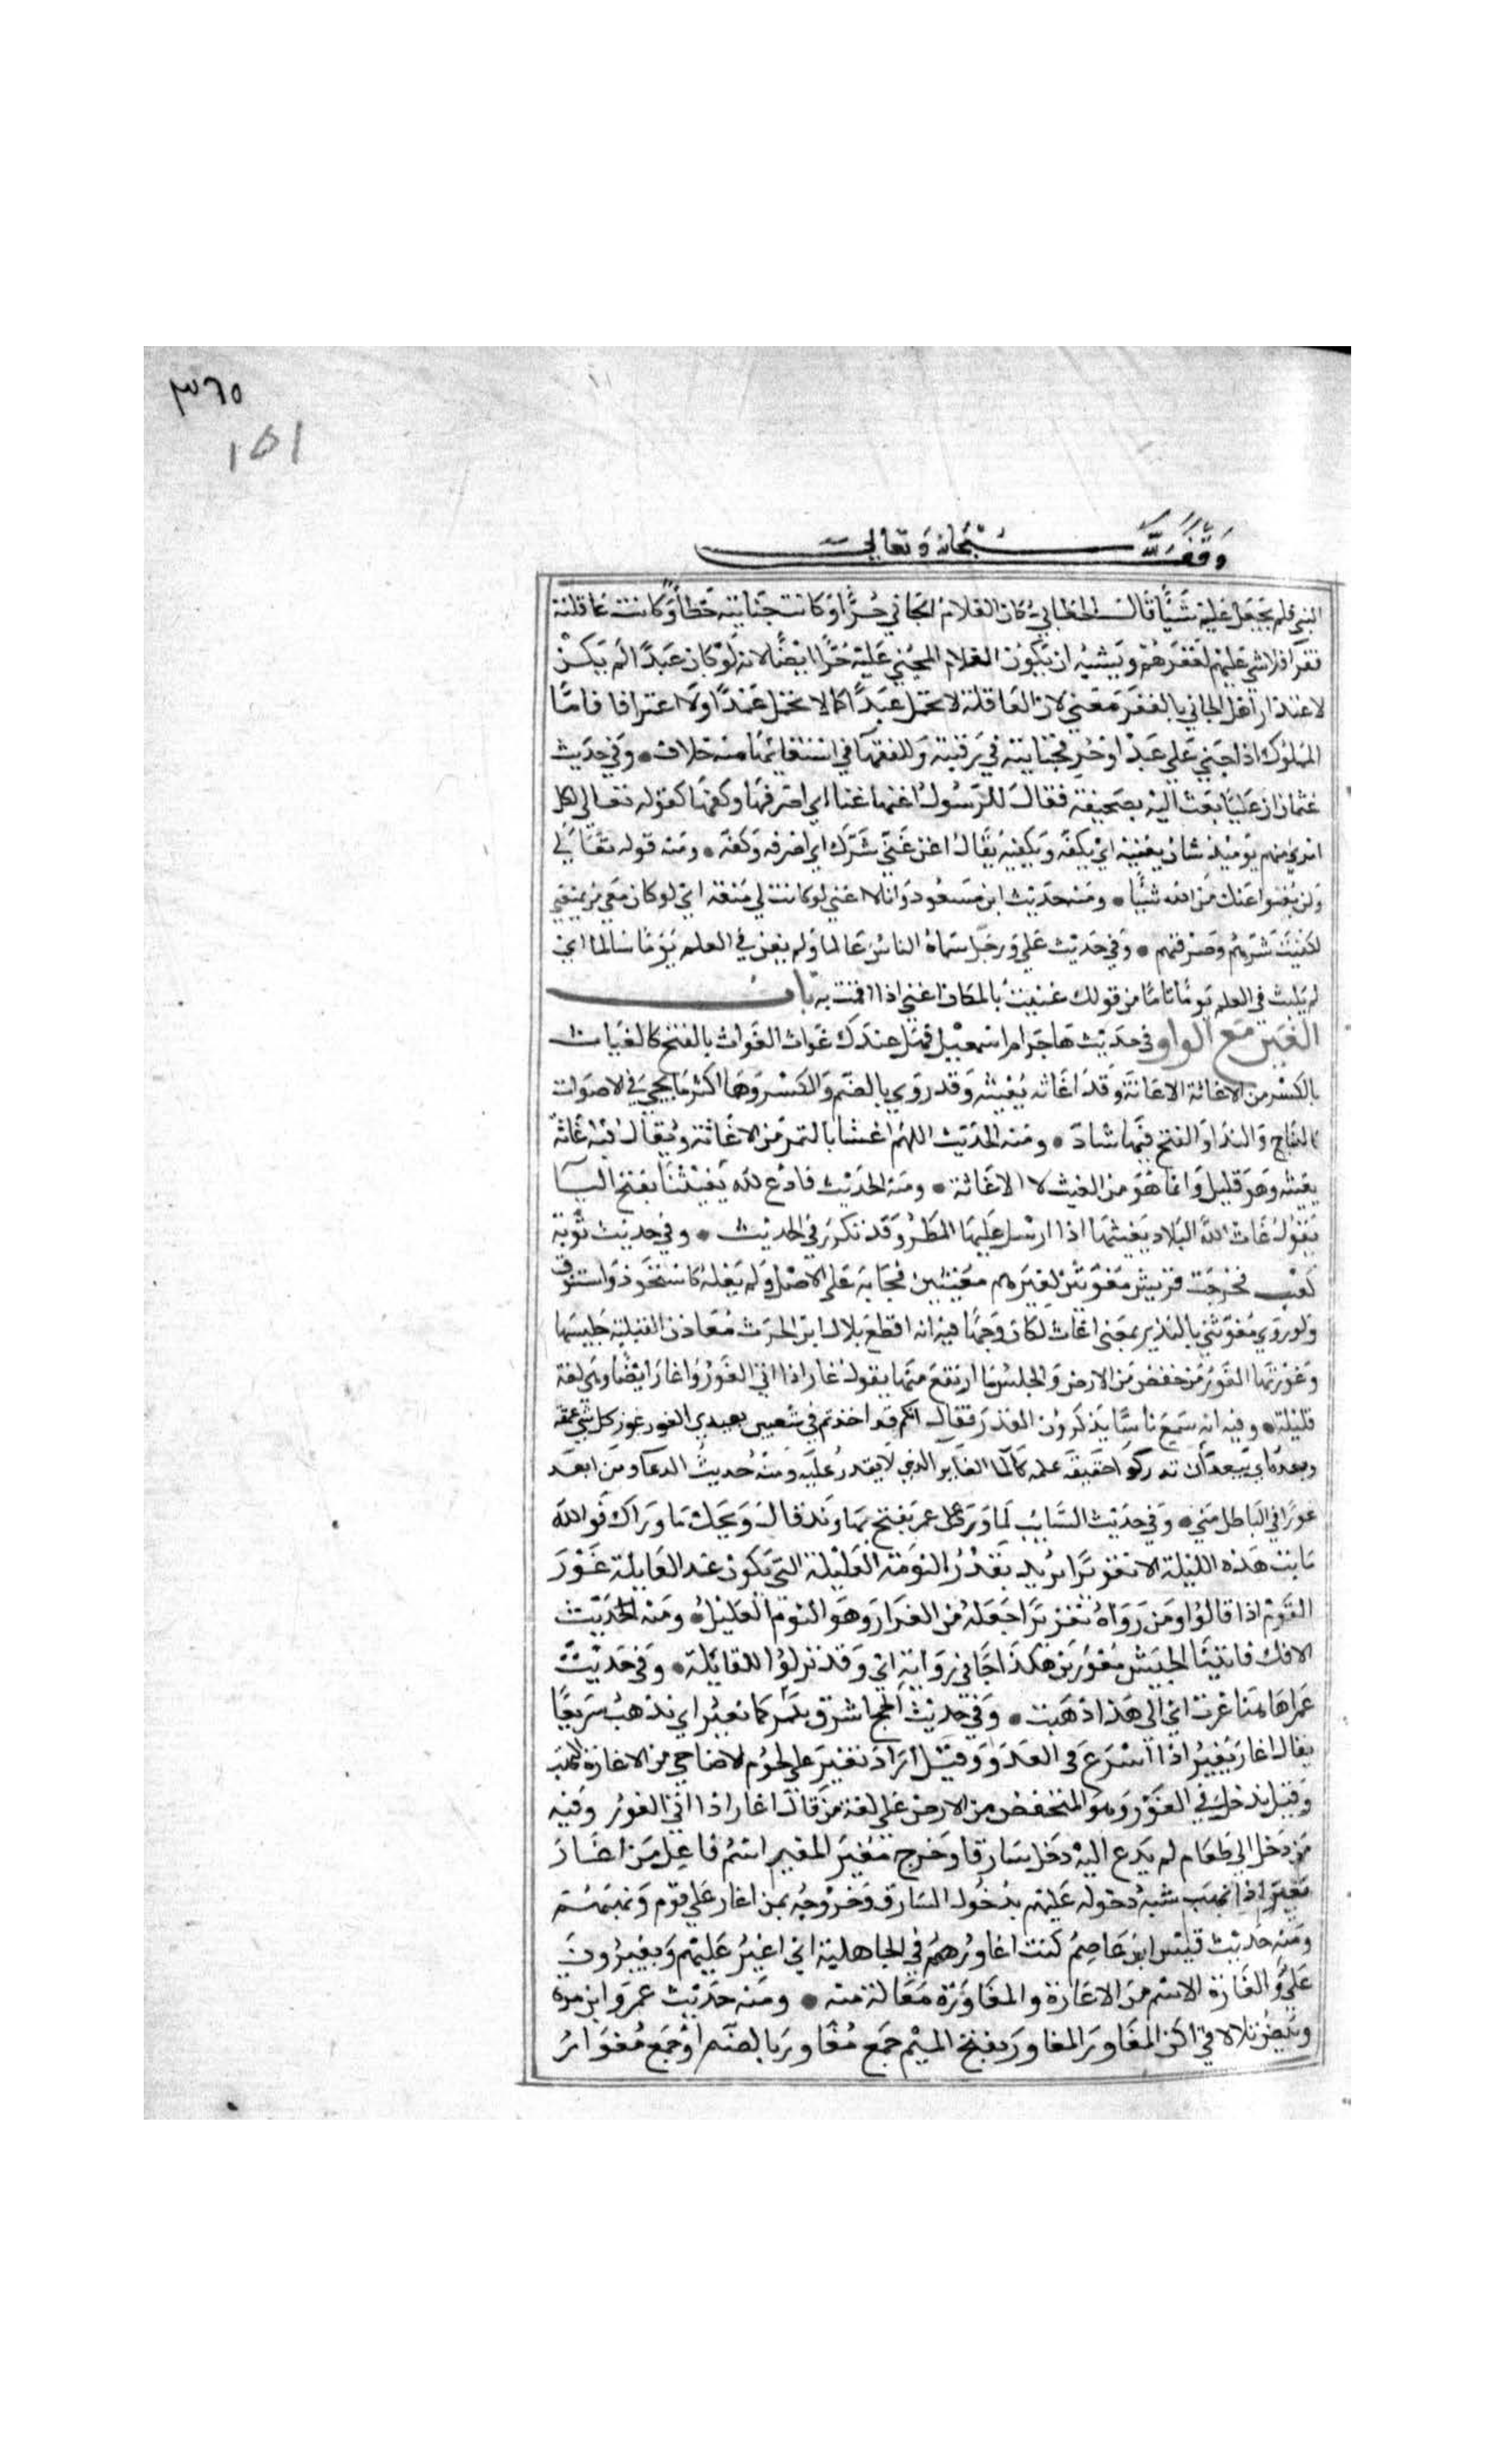 ٣٦٥
١٥١
وقف لله سبحانه وتعالى
النبي فلم يجعل عليه شيئا قال الخطابي كان الغلام الجاني حرا او كانت جنايته خطأ وكانت عاقلته
فقرا فلا شي عليهم لفقرهم ويشبه ان يكون الغلام المجني عليه حرا ايضا لانه لو كان عبدا لم يكن
لاعتذار اهل الجاني بالفقر معني لان العاقلة لا تحمل عبدا كما لا تحمل عمدا ولا اعترافا فاما
المملوك اذا جني علي عبد او حر فجنايته في رقبته وللفقها في استقائها منه خلاف • وفي حديث
عثمان ان عليا بعث اليه بصحيفة فقال للرسول اغنها عنا اي اصرفها وكفها كقوله تعالى لكل
امري منهم يوميذ شان يغنيه اي يكفه ويكفيه يقال اغن عني شرك اي اصرفه وكفه • ومنه قوله تعالي
ولن يغنوا عنك من الله شيئا • ومنه حديث ابن مسعود وانا لا اغني لو كانت لي منعة اي لو كان معي من يمنعني
لكفيت شرهم وصرفتهم • وفي حديث علي ورجل سماه الناس عالما ولم يغن في العلم يوما سالما اي
لم يلبث في العلم يوما تاما من قولك غنيت بالمكان اغني اذا اقمت به باب
الغين مع الواو في حديث هاجر ام اسمعيل فهل عندك غواث الغواث بالفتح كالغياث
بالكسر من الاغاثة الاعانة وقد اغاثه يغيثه وقد روي بالضم والكسر وهما اكثر ما يجي في الاصوات
كالنباح والندا والفتح فيها شاذ • ومنه الحديث اللهم اغثنا بالتمر من الاغاثة ويقال فيه غاثه
يغيثه وهو قليل وانما هو من الغيث لا الاغاثة • ومنه الحديث فادع الله يغيثنا بفتح اليا
يقول غاث الله البلاد يغيثها اذا ارسل عليها المطر وقد تكرر في الحديث • وفي حديث توبة
كعب فخرجت قريش مغوثين لعيرهم مغيثين فجا به على الاصل ولم يعله كاستحوذ واستنوق
ولو روي مغوثين بالتشديد بمعنى اغاث لكان وجها فيه انه اقطع بلال ابن الحرث معادن القبلية جليسها
وغوريها الغور من خفض من الارض والجلس ما ارتفع منها يقول غار اذا اتى الغور واغار ايضا وهي لغة
قليلة • وفيه انه سمع ناسا يذكرون القدر فقال انكم قد اخذتم في شعبين بعيدي الغور غور كل شي عمقه
وبعده اي يبعد ان تدركوا حقيقة علمه كالما الغاير الذي لا يقدر عليه ومنه حديث الدعا ومن ابعد
غورا في الباطل مني • وفي حديث السايب لما ورد على عمر بفتح نهاوند قال ويحك ما وراك فوالله
ما بت هذه الليلة الا تغويرا يريد بقدر النومة القليلة التي تكون عند القايلة غور
القوم اذا قالوا ومن رواه تغريرا جعله من الغرار وهو النوم القليل • ومنه الحديث
الافك فاتينا الجيش مغورين هكذا جا في رواية اي وقد نزلوا للقايلة • وفي حديث
عمر اهاهنا غرت اي الى هذا ذهبت • وفي حديث الحج اشرق ثبير كما نغير اي نذهب سريعا
يقال اغار يغير اذا اسرع في العدو وقيل اراد نغير على لحوم الاضاحي من الاغارة النهب
وقيل ندخل في الغور وهو المنخفض من الارض على لغة من قال اغار اذا اتى الغور وفيه
من دخل الي طعام لم يدع اليه دخل سارقا وخرج مغيرا المغير اسم فاعل من اغار
يغير اذا نهب شبه دخوله عليهم بدخول السارق وخروجه بمن اغار علي قوم ونهبهم
ومنه حديث قيس ابن عاصم كنت اغاورهم في الجاهلية اي اغير عليهم ويغيرون
علي والغارة الاسم من الاغارة والمغاورة مفاعلة منه • ومنه حديث عمرو ابن مرة
وبيض تلالا في اكف المغاور المغاور بفتح الميم جمع مغاور بالضم او جمع مغوار